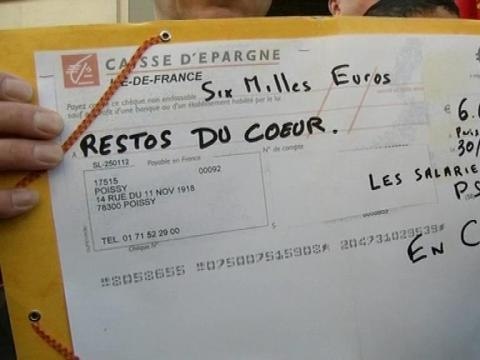 CAISSE D'EPARGNE
ILE-DE-FRANCE
Payez contre ce chèque non endossable
Six Milles Euros
sauf au profit d'une banque ou d'un établissement habilité par la loi
€ 6.
RESTOS DU COEUR.
30/
SL-250112
Payable en France
N° de compte
17515 00092
POISSY
14 RUE DU 11 NOV 1918
78300 POISSY
LES SALARIE
PS
TEL 01 71 52 29 00
Chèque N°
EN C
8058655 075007515908 204731029539